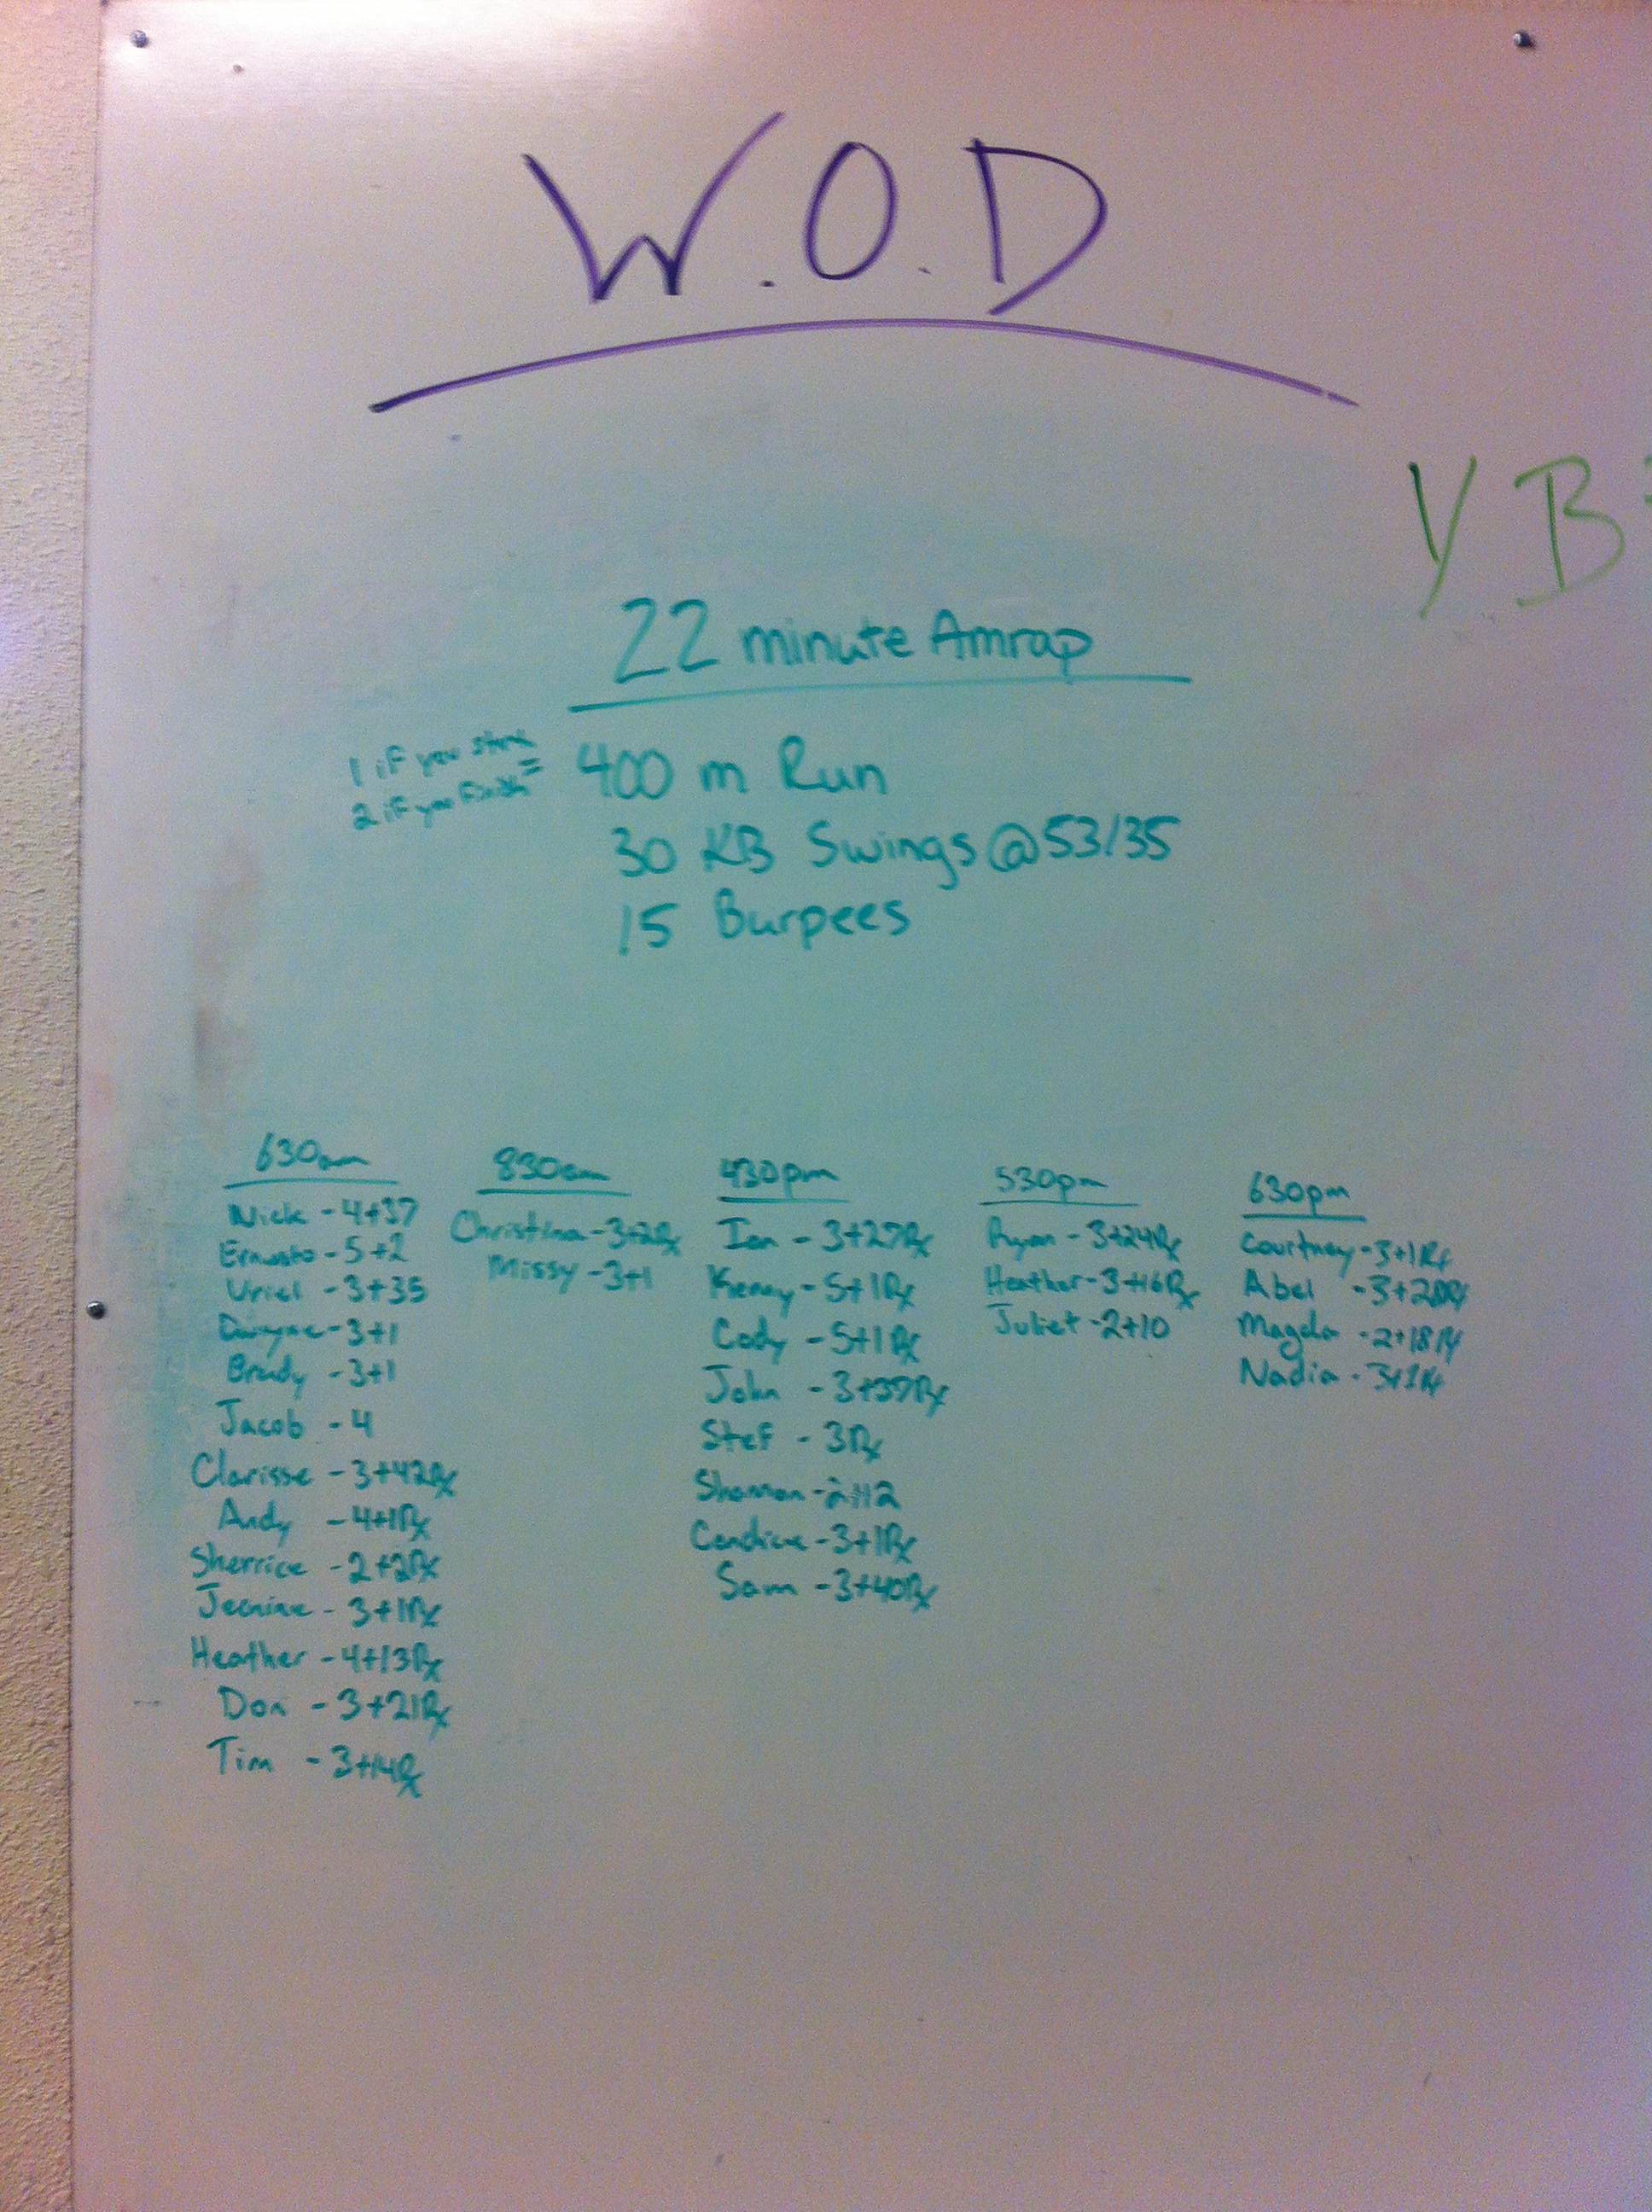 W.O.D
Y B
22 minute Amrap
1 if you start
2 if you finish =
400 m Run
30 KB Swings @ 53/35
15 Burpees
630am
Nick - 4+37
Ernesto - 5+2
Uriel - 3+35
Dwayne - 3+1
Brady - 3+1
Jacob - 4
Clarisse - 3+42Rx
Andy - 4+1Rx
Sherrice - 2+2Rx
Jeanine - 3+1Rx
Heather - 4+13Rx
Don - 3+21Rx
Tim - 3+14Rx
830am
Christina - 3+2Rx
Missy - 3+1
430pm
Ian - 3+27Rx
Kenny - 5+1Rx
Cody - 5+1Rx
John - 3+37Rx
Stef - 3Rx
Shannon - 2+12
Candice - 3+1Rx
Sam - 3+40Rx
530pm
Ryan - 3+24Rx
Heather - 3+16Rx
Juliet - 2+10
630pm
Courtney - 3+1Rx
Abel - 3+20Rx
Magda - 2+18Rx
Nadia -